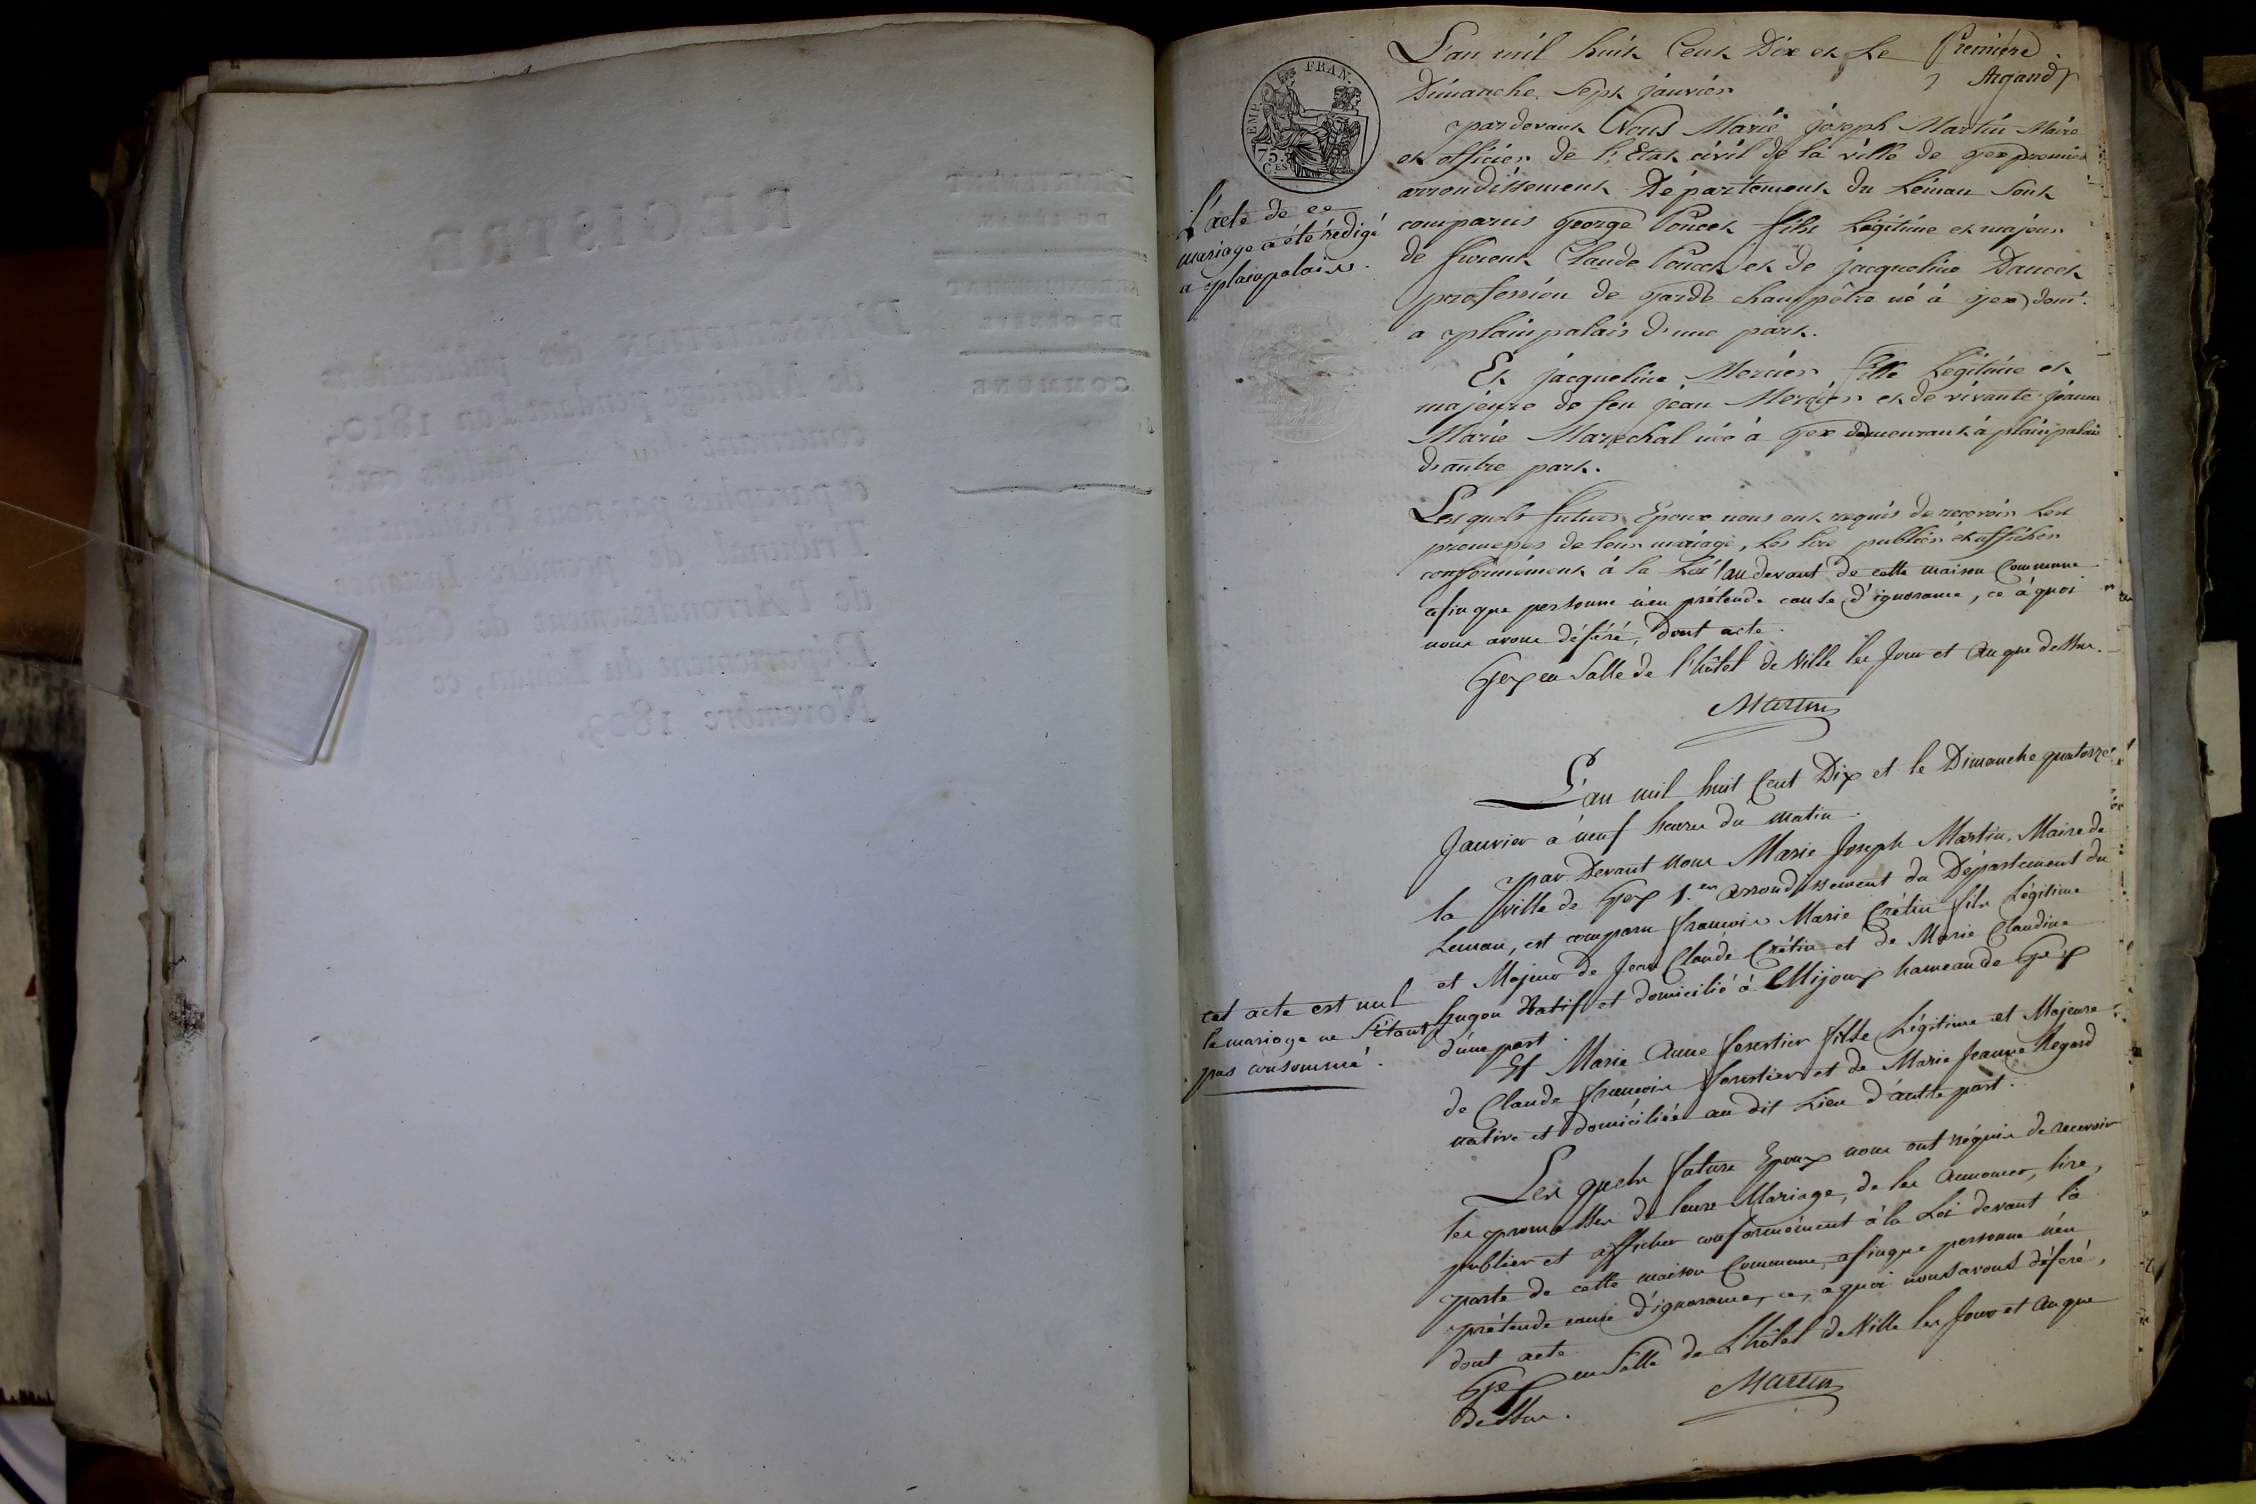 REGISTRE
D'INSCRIPTION des publications
de Mariage pendant l'an 1810,
contenant feuillets coté
et paraphés par nous Président du
Tribunal de première Instance
de l'Arrondissement de Genève,
Département du Léman, ce
Novembre 1809.
DÉPARTEMENT
DU LÉMAN
ARRONDISSEMENT
DE GENÈVE
COMMUNE
EMP. FRAN.
75.
CES
Première
Argand
L'an mil huit Cent Dix et Le
Dimanche Sept janvier
pardevant Nous Marie joseph Martin Maire
et officier de l'Etat civil de la ville de gex premier
arrondissement Département du Léman Sont
comparus george Poncet fils Légitime et majeur
de furent Claude Poncet et de jacqueline Dancet
profession de garde champêtre né à gex dom.
a plainpalais d'une part.
L'acte de ce
mariage a été rédigé
a plainpalais.
Et jacqueline Mercier fille Légitime et
majeure de feu jean Mercier et de vivante jeanne
Marie Marechal née à gex demeurant à plainpalais
d'autre part.
Lesquels futurs Epoux nous ont requis de recevoir Les
promesses de leur mariage, Les lire publier et afficher
conformément à la Loi au devant de cette maison Commune
afin que personne n'en prétende cause d'ignorance, ce à quoi
nous avons déféré, dont acte.
Gex en Salle de l'hôtel de Ville les Jour et An que dessus.
Martin
L'an mil huit Cent Dix et le Dimanche quatorze
Janvier à neuf heures du matin.
par Devant nous Marie Joseph Martin, Maire de
la ville de Gex 1.er arrondissement du Département du
Leman, est comparu françois Marie Crétin fils Légitime
et Majeur de Jean Claude Crétin et de Marie Claudine
hugon Natif et domicilié à Mijoux hameau de Gex
d'une part.
cet acte est nul
le mariage ne S'étant
pas consommé.
Et Marie Anne forestier fille Légitime et Majeure
de Claude françois forestier et de Marie Jeanne Regard
native et domiciliée au dit Lieu d'autre part.
Les quels futurs Epoux nous ont réquis de recevoir
les promesses de leurs Mariage, de les Annoncer, lire,
publier et afficher conformément à la Loi devant la
porte de cette maison Commune, afinque personne n'en
prétende cause d'ignorance, ce, a quoi nous avons déféré,
dont acte.
Gex en Salle de L'hôtel de Ville les Jour et An que
dessus.
Martin